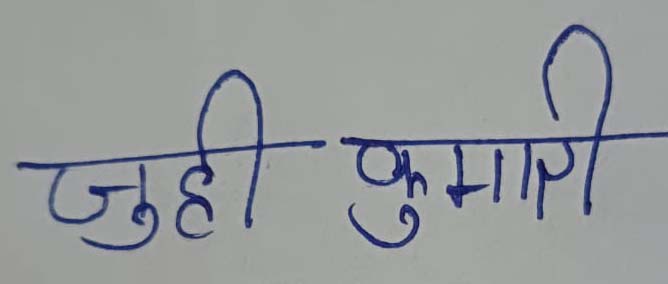 जुही कुमारी